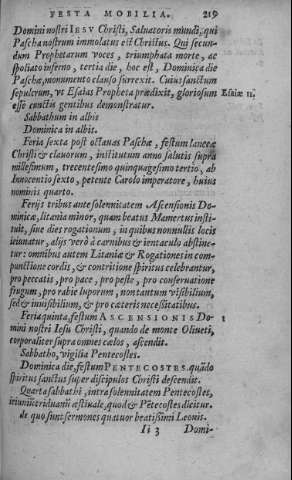 FESTA MOBILIA. 219
Domini nostri IESV Christi, Saluatoris mundi, qui
Pascha nostrum immolatus est Christus. Qui secun-
dum Prophetarum voces, triumphata morte, ac
spoliato inferno, tertia die, hoc est, Dominica die
Paschæ, monumento clauso surrexit. Cuius sanctum
sepulcrum, vt Esaias Propheta prædixit, gloriosum
Esaiæ 11.
esse cunctis gentibus demonstratur.
Sabbathum in albis
Dominica in albis.
Feria sexta post octauas Paschæ, festum lanceæ
Christi & clauorum, institutum anno salutis supra
millesimum, trecentesimo quinquagesimo tertio, ab
Innocentio sexto, petente Carolo imperatore, huius
nominis quarto.
Ferijs tribus ante solennitatem Ascensionis Do-
minicæ, litania minor, quam beatus Mamertus insti-
tuit, siue dies rogationum, in quibus nonnullis locis
ieiunatur, alijs verò à carnibus & ientaculo abstine-
tur: omnibus autem Litaniæ & Rogationes in com-
punctione cordis, & contritione spiritus celebrantur,
pro peccatis, pro pace, pro peste, pro conseruatione
frugum, pro rabie luporum, non tantum visibilium,
sed & inuisibilium, & pro cæteris necessitatibus.
Feria quinta, festum ASCENSIONIS Do-
mini nostri Iesu Christi, quando de monte Oliueti,
corporaliter supra omnes cælos, ascendit.
Sabbatho, vigilia Pentecostes.
Dominica die, festum PENTECOSTES. quãdo
spiritus sanctus super discipulos Christi descendit.
Quarta sabbathi, intra solennitatem Pentecostes,
ieiunium quatriduanũ æstiuale, quod & Pẽtecostes dicitur.
de quo sunt sermones quatuor beatissimi Leonis.
Ii 3 Domi-